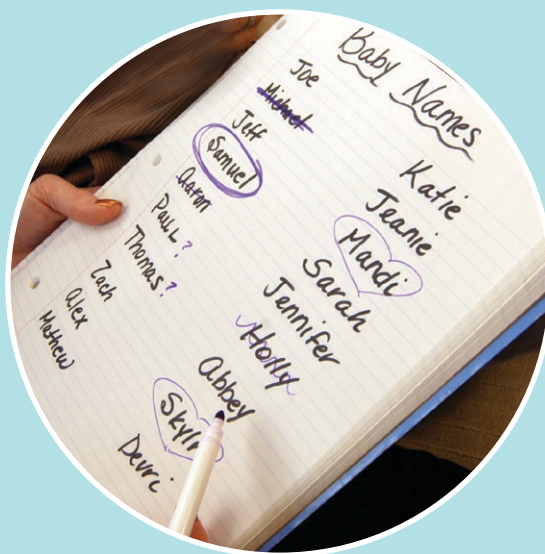 Baby Names
Joe
Michael
Jeff
Samuel
Aaron
Paul?
Thomas?
Zach
Alex
Mathew
Katie
Jeanie
Mandi
Sarah
Jennifer
Holly
Abbey
Devri